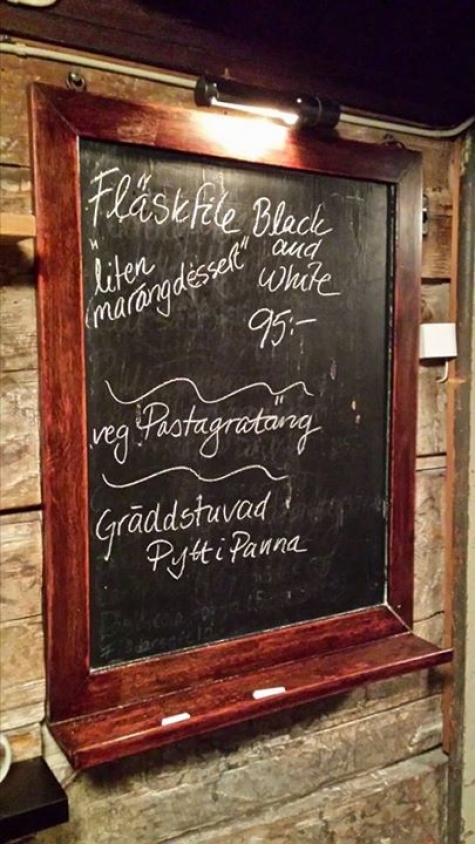 Fläskfile Black
and
White
"liten
marängdessert"
95:-
veg Pastagratäng
Gräddstuvad
Pytt i Panna